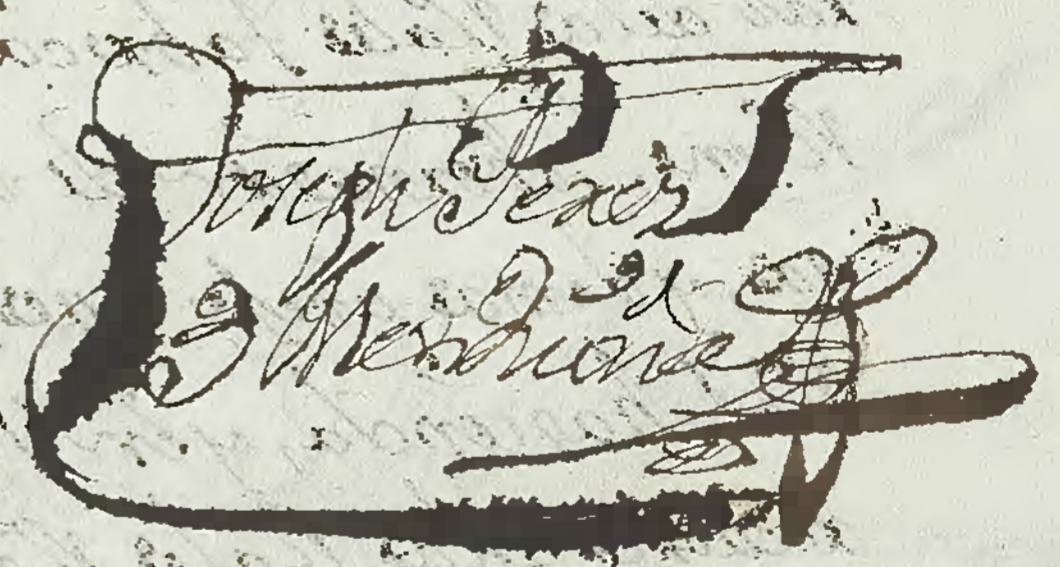 Joseph Perez
Mendiona